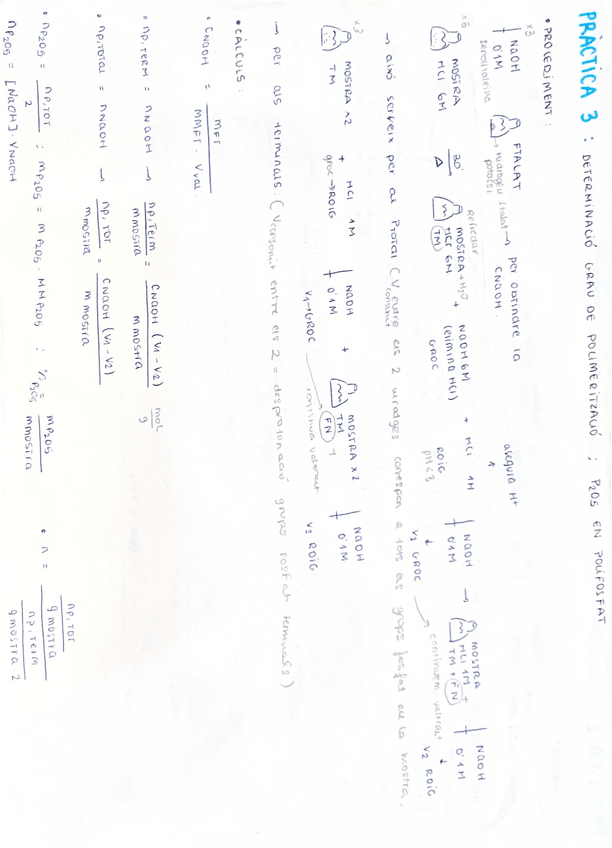 PRÀCTICA 3 : DETERMINACIÓ GRAU DE POLIMERITZACIÓ ; P2O5 EN POLIFOSFAT
• PROCEDIMENT :
x3
NaOH
0'1M
fenolftaleïna
FTALAT → per obtindre la
CNaOH.
→ Hidrogen ftalat
potassi
assegura H+
x3
MOSTRA
HCl 6M
20'
Δ
Refredar
MOSTRA + H2O
HCl 6M
TM
+
NaOH 6M
(elimina HCl)
GROC
+ HCl 1M
ROIG
pH<3
NaOH
0'1M
V1 GROC
→
MOSTRA
HCl 1M +
TM + FN
continuem valorant
NaOH
0'1M
V2 ROIG
→ això serveix per al Ptotal (V entre els 2 viratges correspon a tots els grups fosfat en la mostra.
consumit
x3
MOSTRA x2
TM
+ HCl 1M
groc → ROIG
NaOH
0'1M
V1 → GROC
+
MOSTRA x2
TM +
FN
continua valorant
NaOH
0'1M
V2 ROIG
→ per als terminals. (Vconsumit entre els 2 = desprotonació grups fosfat terminals)
• CÀLCULS :
• CNaOH = mFT / MMFT · Vval.
• nP,TERM = nNaOH → nP,Term / m mostra = CNaOH (V1 - V2) / m mostra mol / g
• nP,TOTAL = nNaOH → nP,TOT / m mostra = CNaOH (V1 - V2) / m mostra
• nP2O5 = nP,TOT / 2 ; mP2O5 = nP2O5 · MMP2O5 ; % P2O5 = mP2O5 / m mostra • n = nP,TOT / g mostra / nP,Term / g mostra 2
nP2O5 = [NaOH] · VNaOH